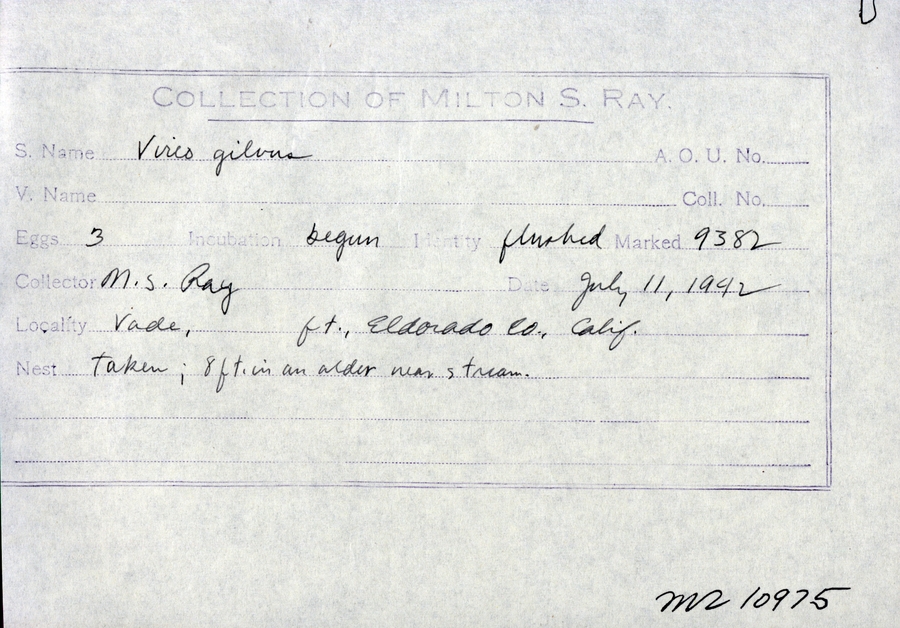 COLLECTION OF MILTON S. RAY.
S. Name Vireo gilvus A. O. U. No.
V. Name Coll. No.
Eggs 3 Incubation begun Identity flushed Marked 9382
Collector M. S. Ray Date July 11, 1942
Locality Vade, ft., Eldorado Co., Calif.
Nest taken; 8 ft. in an alder near stream.
10975